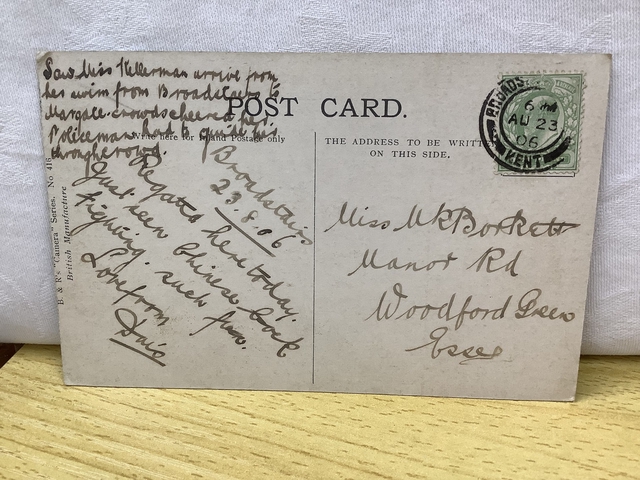 Saw Miss Kellerman arrive from
her swim from Broadstairs to
Margate. crowds cheered her.
Policeman had to guide his
through crowd.
POST CARD.
Write here for Inland Postage only
THE ADDRESS TO BE WRITTEN
ON THIS SIDE.
B. & R's "Camera" Series. No 416
British Manufacture
Broadstairs
23.8.06
Regatta here today.
Just seen Chinese Cock
Fighting. such fun.
Love from
BROADS
6 PM
AU 23
06
KENT
Miss M K Borkett
Manor Rd
Woodford Green
Essex